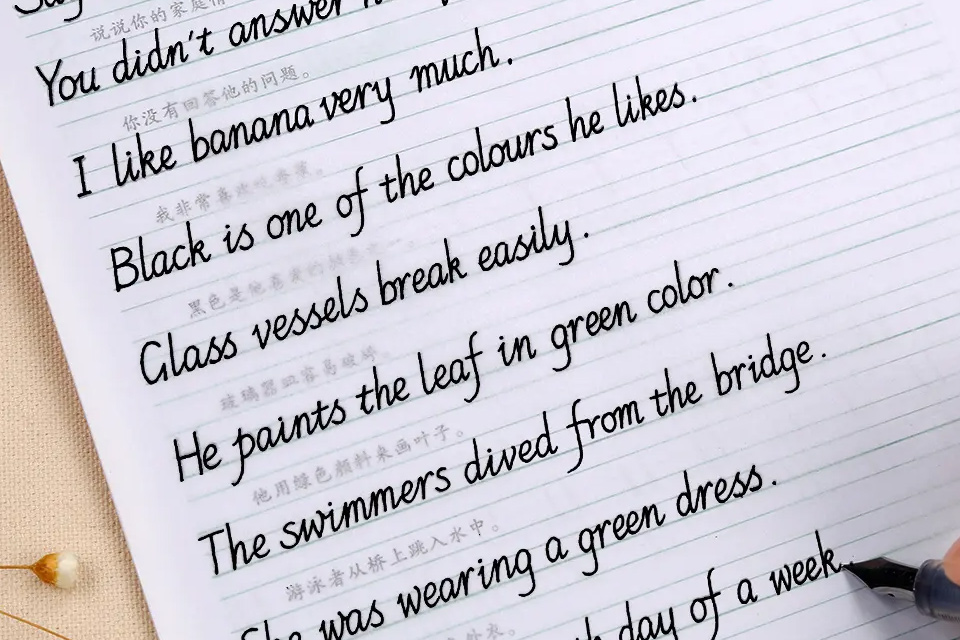 说说你的家庭情
You didn't answer
你没有回答他的问题。
I like banana very much.
我非常喜欢吃香蕉。
Black is one of the colours he likes.
黑色是他喜爱的颜色之一。
Glass vessels break easily.
玻璃器皿容易破碎。
He paints the leaf in green color.
他用绿色颜料来画叶子。
The swimmers dived from the bridge.
游泳者从桥上跳入水中。
She was wearing a green dress.
外衣。
day of a week